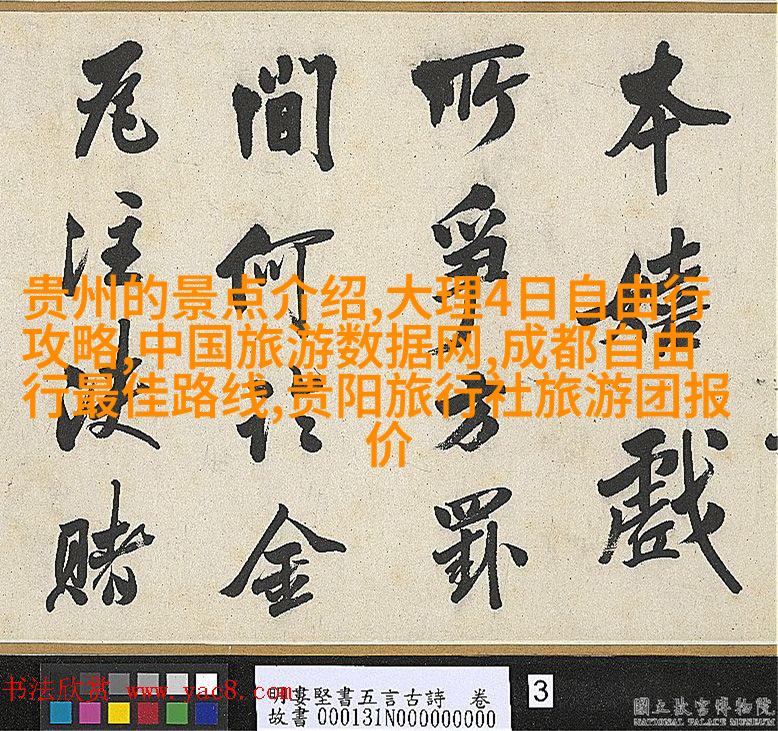 本嬉戲
所爭方罫
間何金
瓦注賭
贵州的景点介绍,大理4日自由行
攻略,中国旅游数据网,成都自由
行最佳路线,贵阳旅行社旅游团报
价
书法欣赏 www.yac8.com
明婁堅書五言古詩 卷
故書000131N000000000
3
國立故宮博物院
NATIONAL PALACE MUSEUM